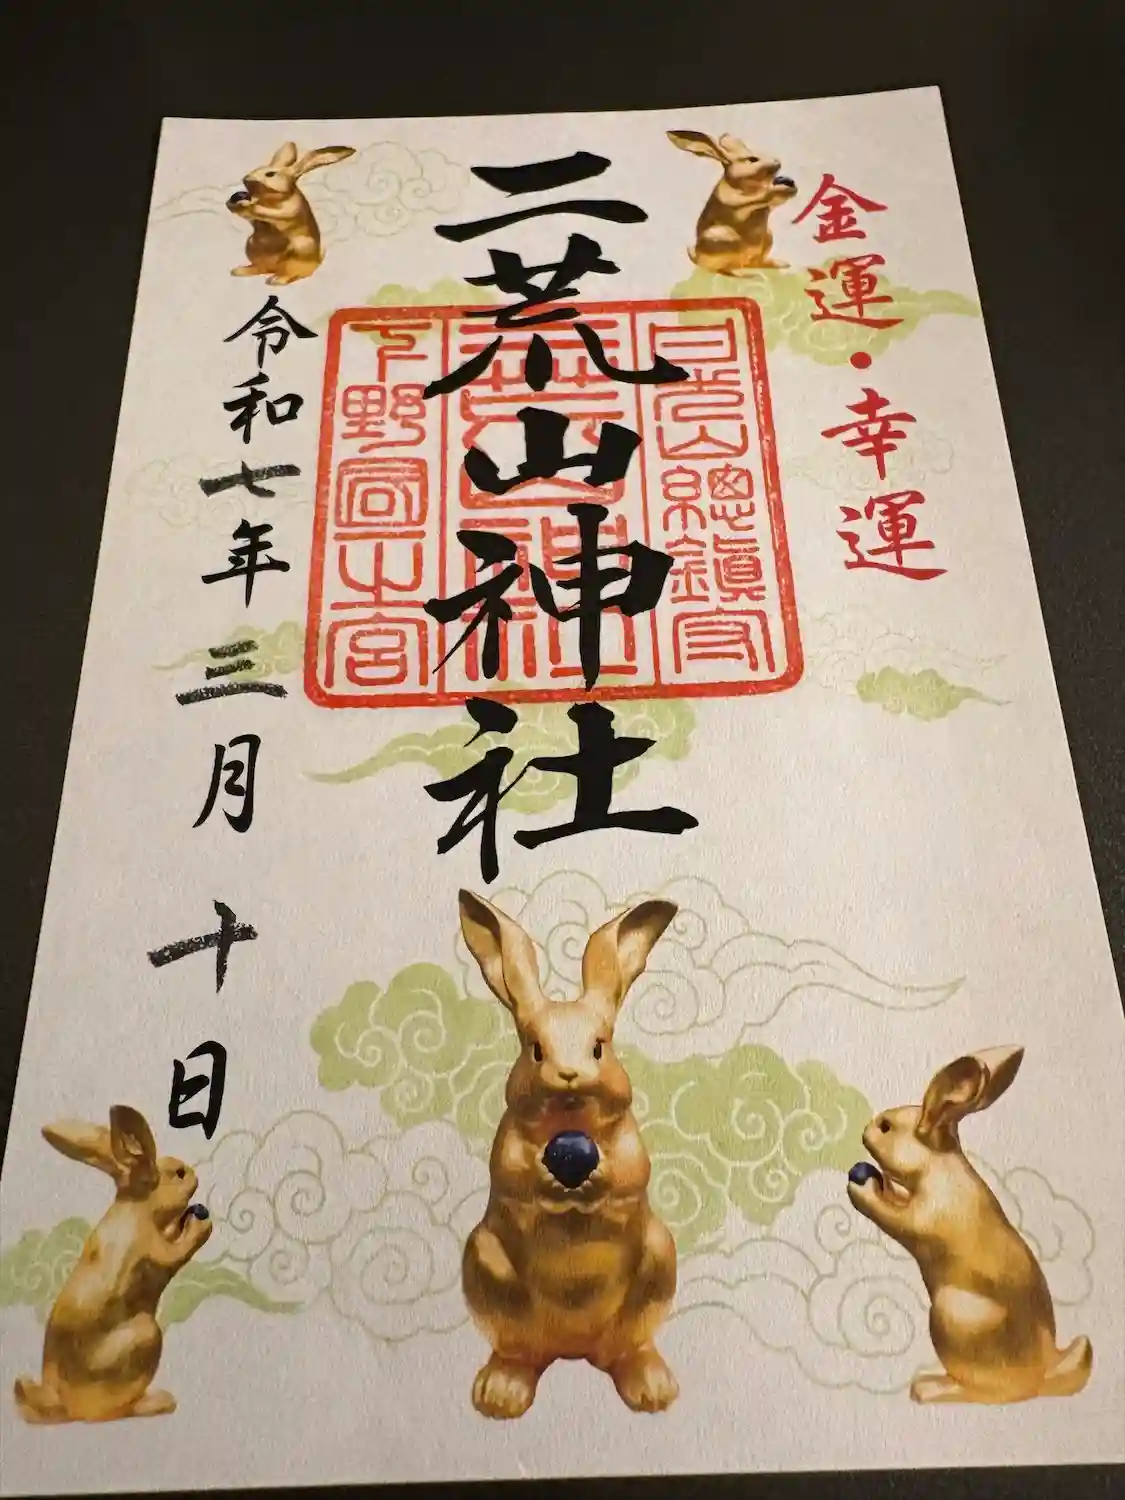 金運・幸運
二荒山神社
日光山總鎮守
二荒山神社
下野国一之宮
令和七年三月十日